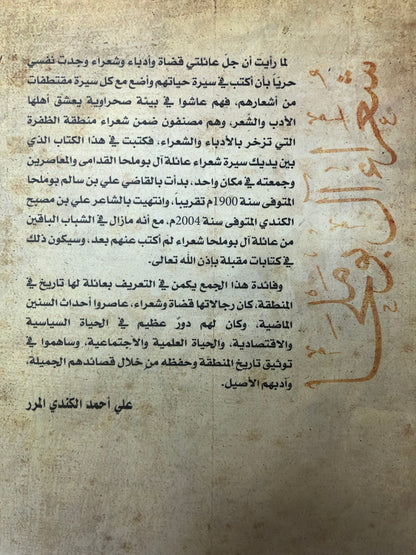 شعراء آل بوملحا
لما رأيت أن جلّ عائلتي قضاة وأدباء وشعراء وجدت نفسي
حرياً بأن أكتب في سيرة حياتهم وأضع مع كل سيرة مقتطفات
من أشعارهم، فهم عاشوا في بيئة صحراوية يعشق أهلها
الأدب والشعر، وهم مصنفون ضمن شعراء منطقة الظفرة
التي تزخر بالأدباء والشعراء، فكتبت في هذا الكتاب الذي
بين يديك سيرة شعراء عائلة آل بوملحا القدامى والمعاصرين
وجمعته في مكان واحد، بدأت بالقاضي علي بن سالم بوملحا
المتوفى سنة 1900م تقريباً، وانتهيت بالشاعر علي بن مصبح
الكندي المتوفى سنة 2004م، مع أنه مازال في الشباب الباقين
من عائلة آل بوملحا شعراء لم أكتب عنهم بعد، وسيكون ذلك
في كتابات مقبلة بإذن الله تعالى.
وفائدة هذا الجمع يكمن في التعريف بعائلة لها تاريخ في
المنطقة، كان رجالاتها قضاة وشعراء، عاصروا أحداث السنين
الماضية، وكان لهم دورٌ عظيم في الحياة السياسية
والاقتصادية، والحياة العلمية والاجتماعية، وساهموا في
توثيق تاريخ المنطقة وحفظه من خلال قصائدهم الجميلة،
وأدبهم الأصيل.
علي أحمد الكندي المرر